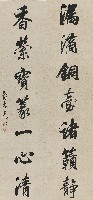 漏滴銅壺諸籟靜
香縈寶篆一心清